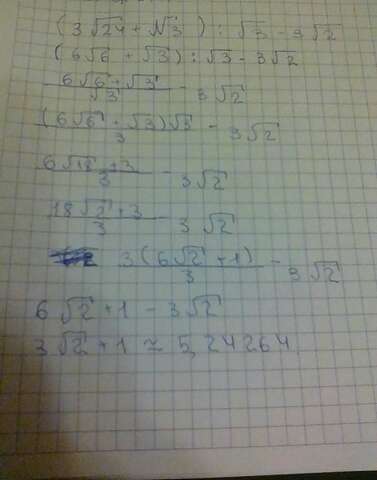 (3√24 + √3) : √3 - 3√2
(6√6 + √3) : √3 - 3√2
(6√6 + √3)/√3 - 3√2
((6√6 + √3)√3)/3 - 3√2
(6√18 + 3)/3 - 3√2
(18√2 + 3)/3 - 3√2
(3(6√2 + 1))/3 - 3√2
6√2 + 1 - 3√2
3√2 + 1 ≈ 5,24264